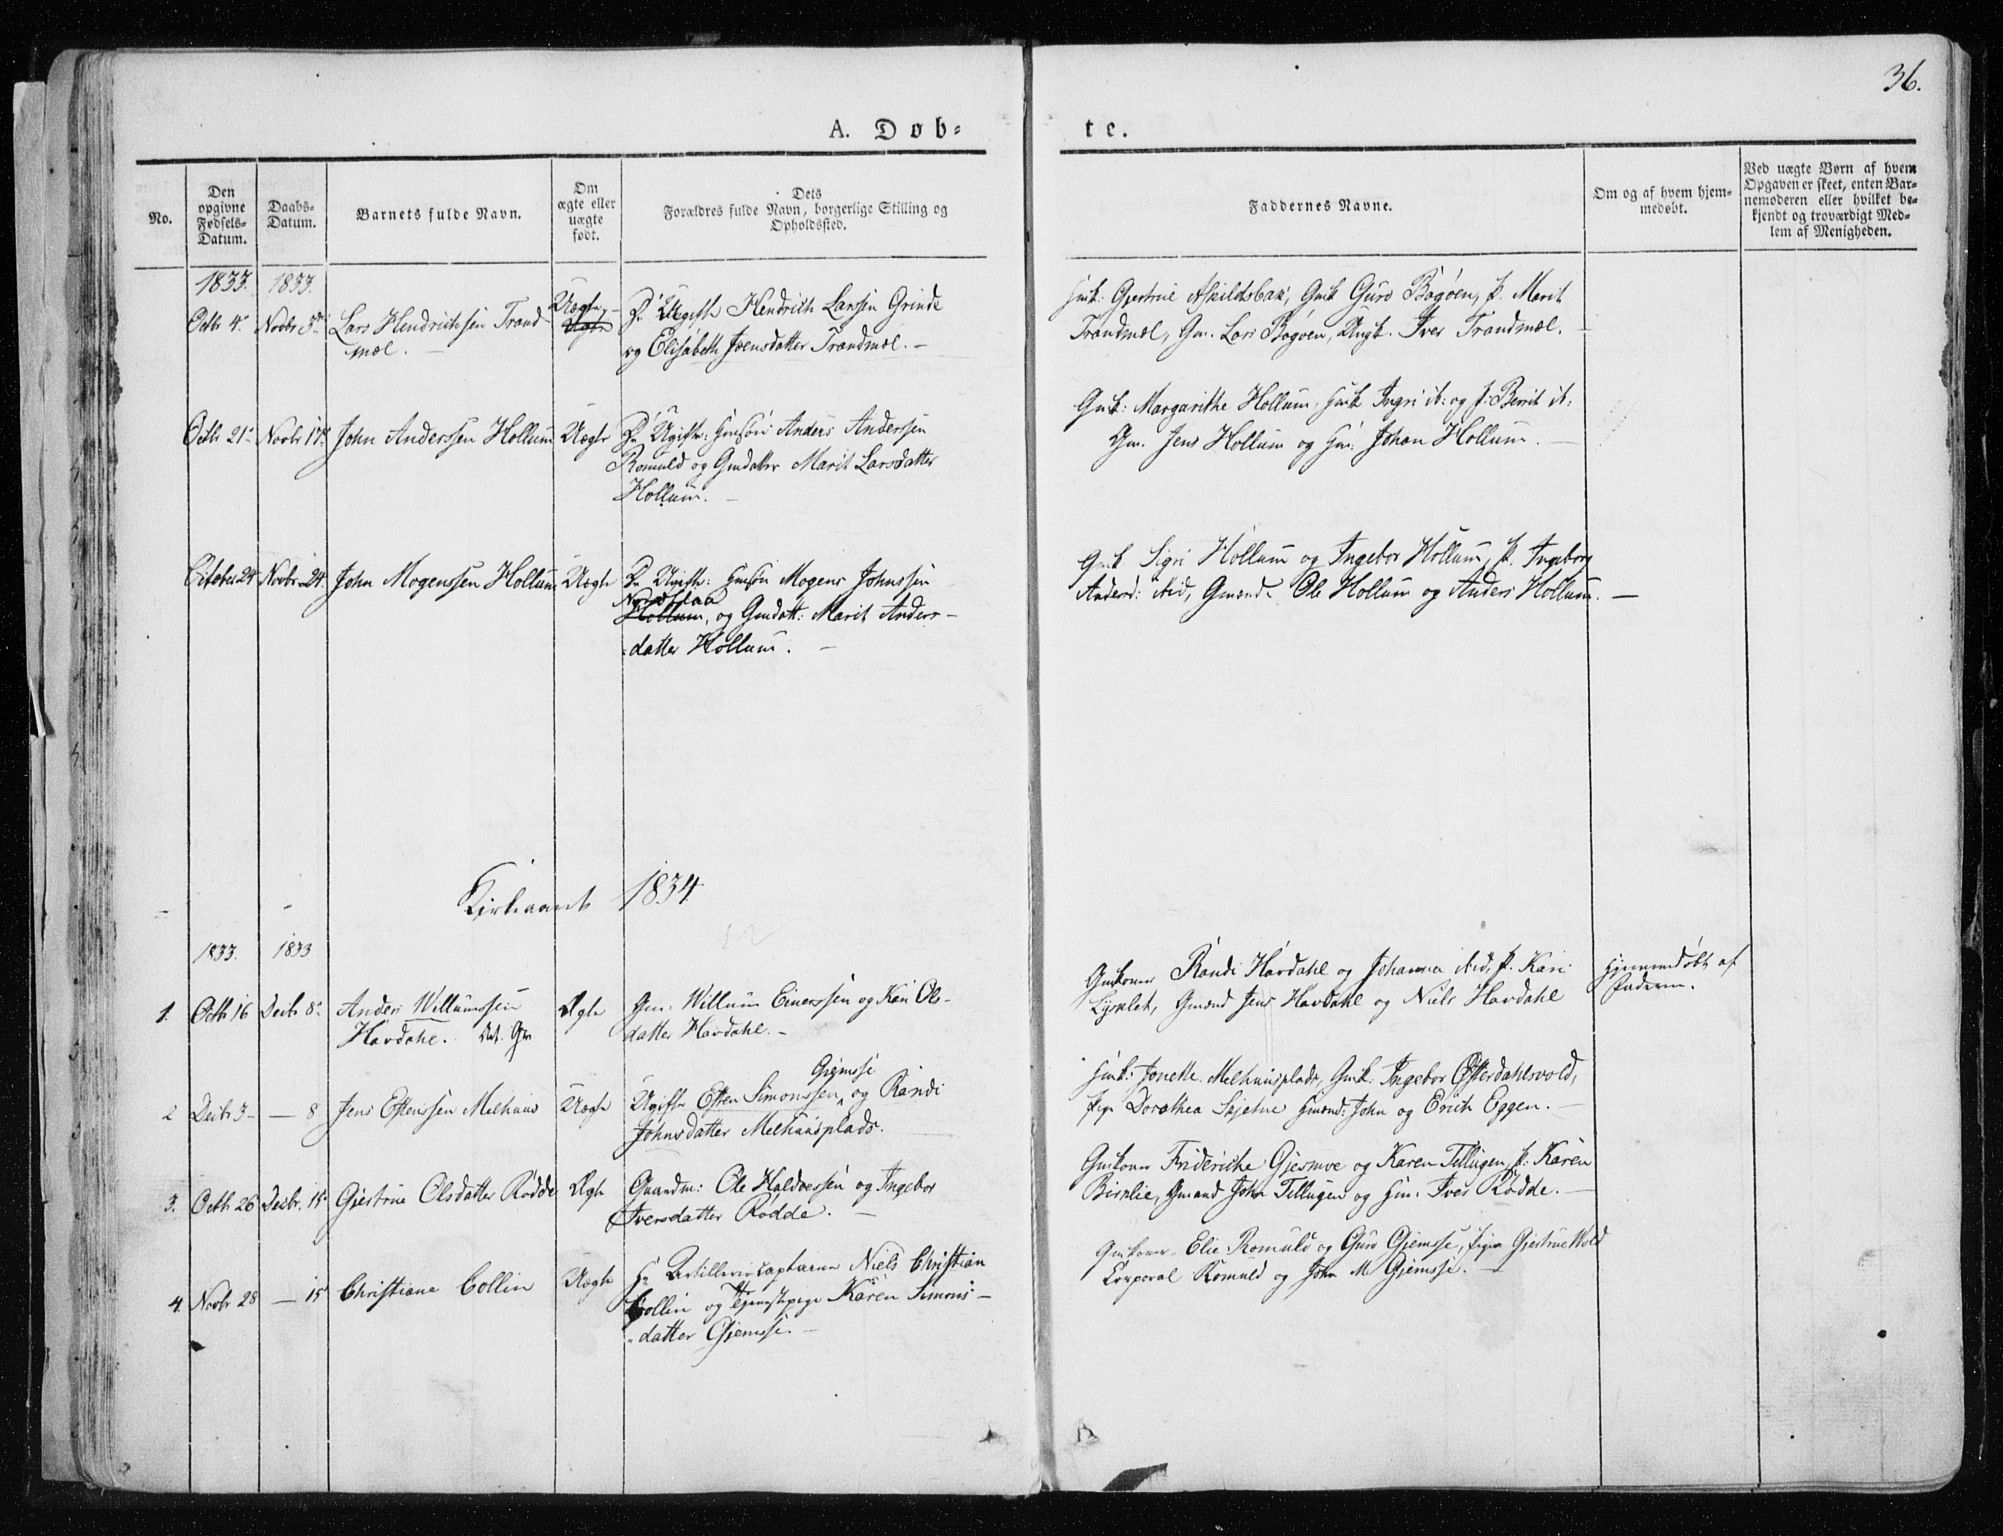 36.
A. Døb-
te.
No.
Den
opgivne
Fødsels-
Datum.
Daabs-
Datum.
Barnets fulde Navn.
Om
ægte eller
uægte
født.
Dets
Forældres fulde Navn, borgerlige Stilling og
Opholdssted.
Faddernes Navne.
Om og af hvem hjem-
medøbt.
Ved uægte Børn af hvem
Opgaven er skeet, enten Bar-
nemoderen eller hvilket be-
kjendt og troværdigt Med-
lem af Menigheden.
1833. 1833.
Octbr 4 Novbr 3
Lars Hendrichsen Trand
mæl.
Uægte
Ugifte Hendrich Larsen Grinde
og Elisabeth Joensdatter Trandmæl.
Gjertrue Askildsbak, Gmk Guro Bøgøen, P. Marit
Trandmæl, Gm. Lars Bøgøen, Ungk. Iver Trandmæl.
Octbr 21 Novbr 17 John Anderssen Hollum Uægte
Ugifte: Anders Anderssen
Romuld og Gmdatter Marit Larsdatter
Hollum.
Gmk: Margarithe Hollum, Ingri ib: og P: Berit ib:
Gm. Jens Hollum og Johan Hollum.
October 24 Novbr 24 John Mogenssen Hollum Uægte
Ugifte: Mogens Johnssen
Hollum, og Gmdatt: Marit Anders-
datter Hollum.
Gmk Sigri Hollum og Ingebor Hollum, P. Ingeborg
Andersd: ibid, Gmænd Ole Hollum og Anders Hollum.
Kirkeaaret 1834
1833. 1833
1. Octbr 16 Decbr 8
Anders Willumssen
Havdahl.
Ægte
Gm: Willum Einerssen og Kari Ols-
datter Havdahl.
Gmkoner Randi Havdahl og Johanna ibid, P. Kari
Lyseklet, Gmænd Jens Havdahl og Niels Havdahl
Hjemmedøbt af
Faderen.
2 Decbr 3 — 8 Jens Estenssen Melhuus Uægte
Gjemsse
Ugifte Esten Simonssen og Randi
Johnsdatter Melhuusplads.
Jonette Melhuusplads, Gmk. Ingebor Østerdahlsvold,
Pige Dorothea Sejetne John og Erich Eggen.
3. Octbr 26 Decbr. 15 Gjertrue Olsdatter Rødde Ægte
Gaardm: Ole Haldorssen og Ingebor
Iversdatter Rødde.
Gmkoner Frideriche Gjesmoe og Karen Tillugen, P: Karen
Birnlie, Gmænd John Tillugen og Iver Rødde.
4. Novbr 28 — 15 Christiane Collin Uægte
Hr Artilleriecaptaine Niels Christian
Collin og Tjenestepige Karen Simons-
datter Gjemsse.
Gmkoner Elie Romuld og Guro Gjemsse, Pigen Gjertrue Wold
Corporal Romuld og John M. Gjemsse.